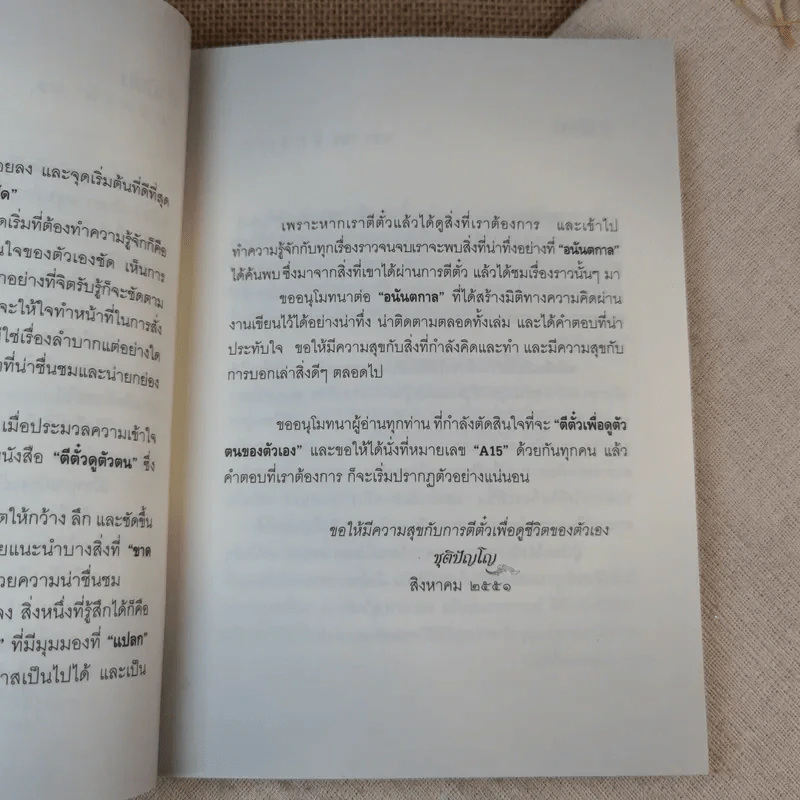 อยลง และจุดเริ่มต้นที่ดีที่สุด
ชัด”
ดเริ่มที่ต้องทำความรู้จักก็คือ
นใจของตัวเองชัด เห็นการ
าอย่างที่จิตรับรู้ก็จะชัดตาม
จะให้ใจทำหน้าที่ในการสั่ง
ม่ใช่เรื่องลำบากแต่อย่างใด
ที่น่าชื่นชมและน่ายกย่อง
เมื่อประมวลความเข้าใจ
นังสือ “ตีตั๋วดูตัวตน” ซึ่ง
ตให้กว้าง ลึก และชัดขึ้น
ยแนะนำบางสิ่งที่ “ขาด
วยความน่าชื่นชม
ลง สิ่งหนึ่งที่รู้สึกได้ก็คือ
” ที่มีมุมมองที่ “แปลก”
าสเป็นไปได้ และเป็น
เพราะหากเราตีตั๋วแล้วได้ดูสิ่งที่เราต้องการ และเข้าไป
ทำความรู้จักกับทุกเรื่องราวจนจบเราจะพบสิ่งที่น่าทึ่งอย่างที่ “อนันตกาล”
ได้ค้นพบ ซึ่งมาจากสิ่งที่เขาได้ผ่านการตีตั๋ว แล้วได้ชมเรื่องราวนั้นๆ มา
ขออนุโมทนาต่อ “อนันตกาล” ที่ได้สร้างมิติทางความคิดผ่าน
งานเขียนไว้ได้อย่างน่าทึ่ง น่าติดตามตลอดทั้งเล่ม และได้คำตอบที่น่า
ประทับใจ ขอให้มีความสุขกับสิ่งที่กำลังคิดและทำ และมีความสุขกับ
การบอกเล่าสิ่งดีๆ ตลอดไป
ขออนุโมทนาผู้อ่านทุกท่าน ที่กำลังตัดสินใจที่จะ “ตีตั๋วเพื่อดูตัว
ตนของตัวเอง” และขอให้ได้นั่งที่หมายเลข “A15” ด้วยกันทุกคน แล้ว
คำตอบที่เราต้องการ ก็จะเริ่มปรากฏตัวอย่างแน่นอน
ขอให้มีความสุขกับการตีตั๋วเพื่อดูชีวิตของตัวเอง
ชุติปัญโญ
สิงหาคม ๒๕๕๑